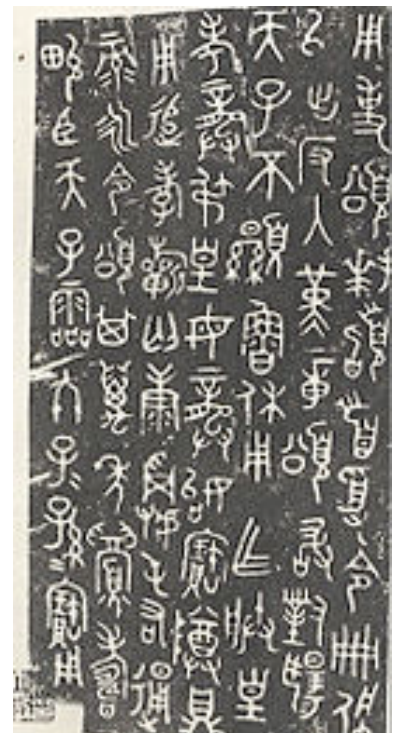 用事頌拜𩒨首受令冊佩
以出反入堇章頌敢對揚
天子不顯魯休用乍朕皇
考龏弔皇母龏始寶尊鼎
用追孝匄康屯右通
彔永令頌其萬年眉壽
畯臣天子霝冬子=孫=寶用